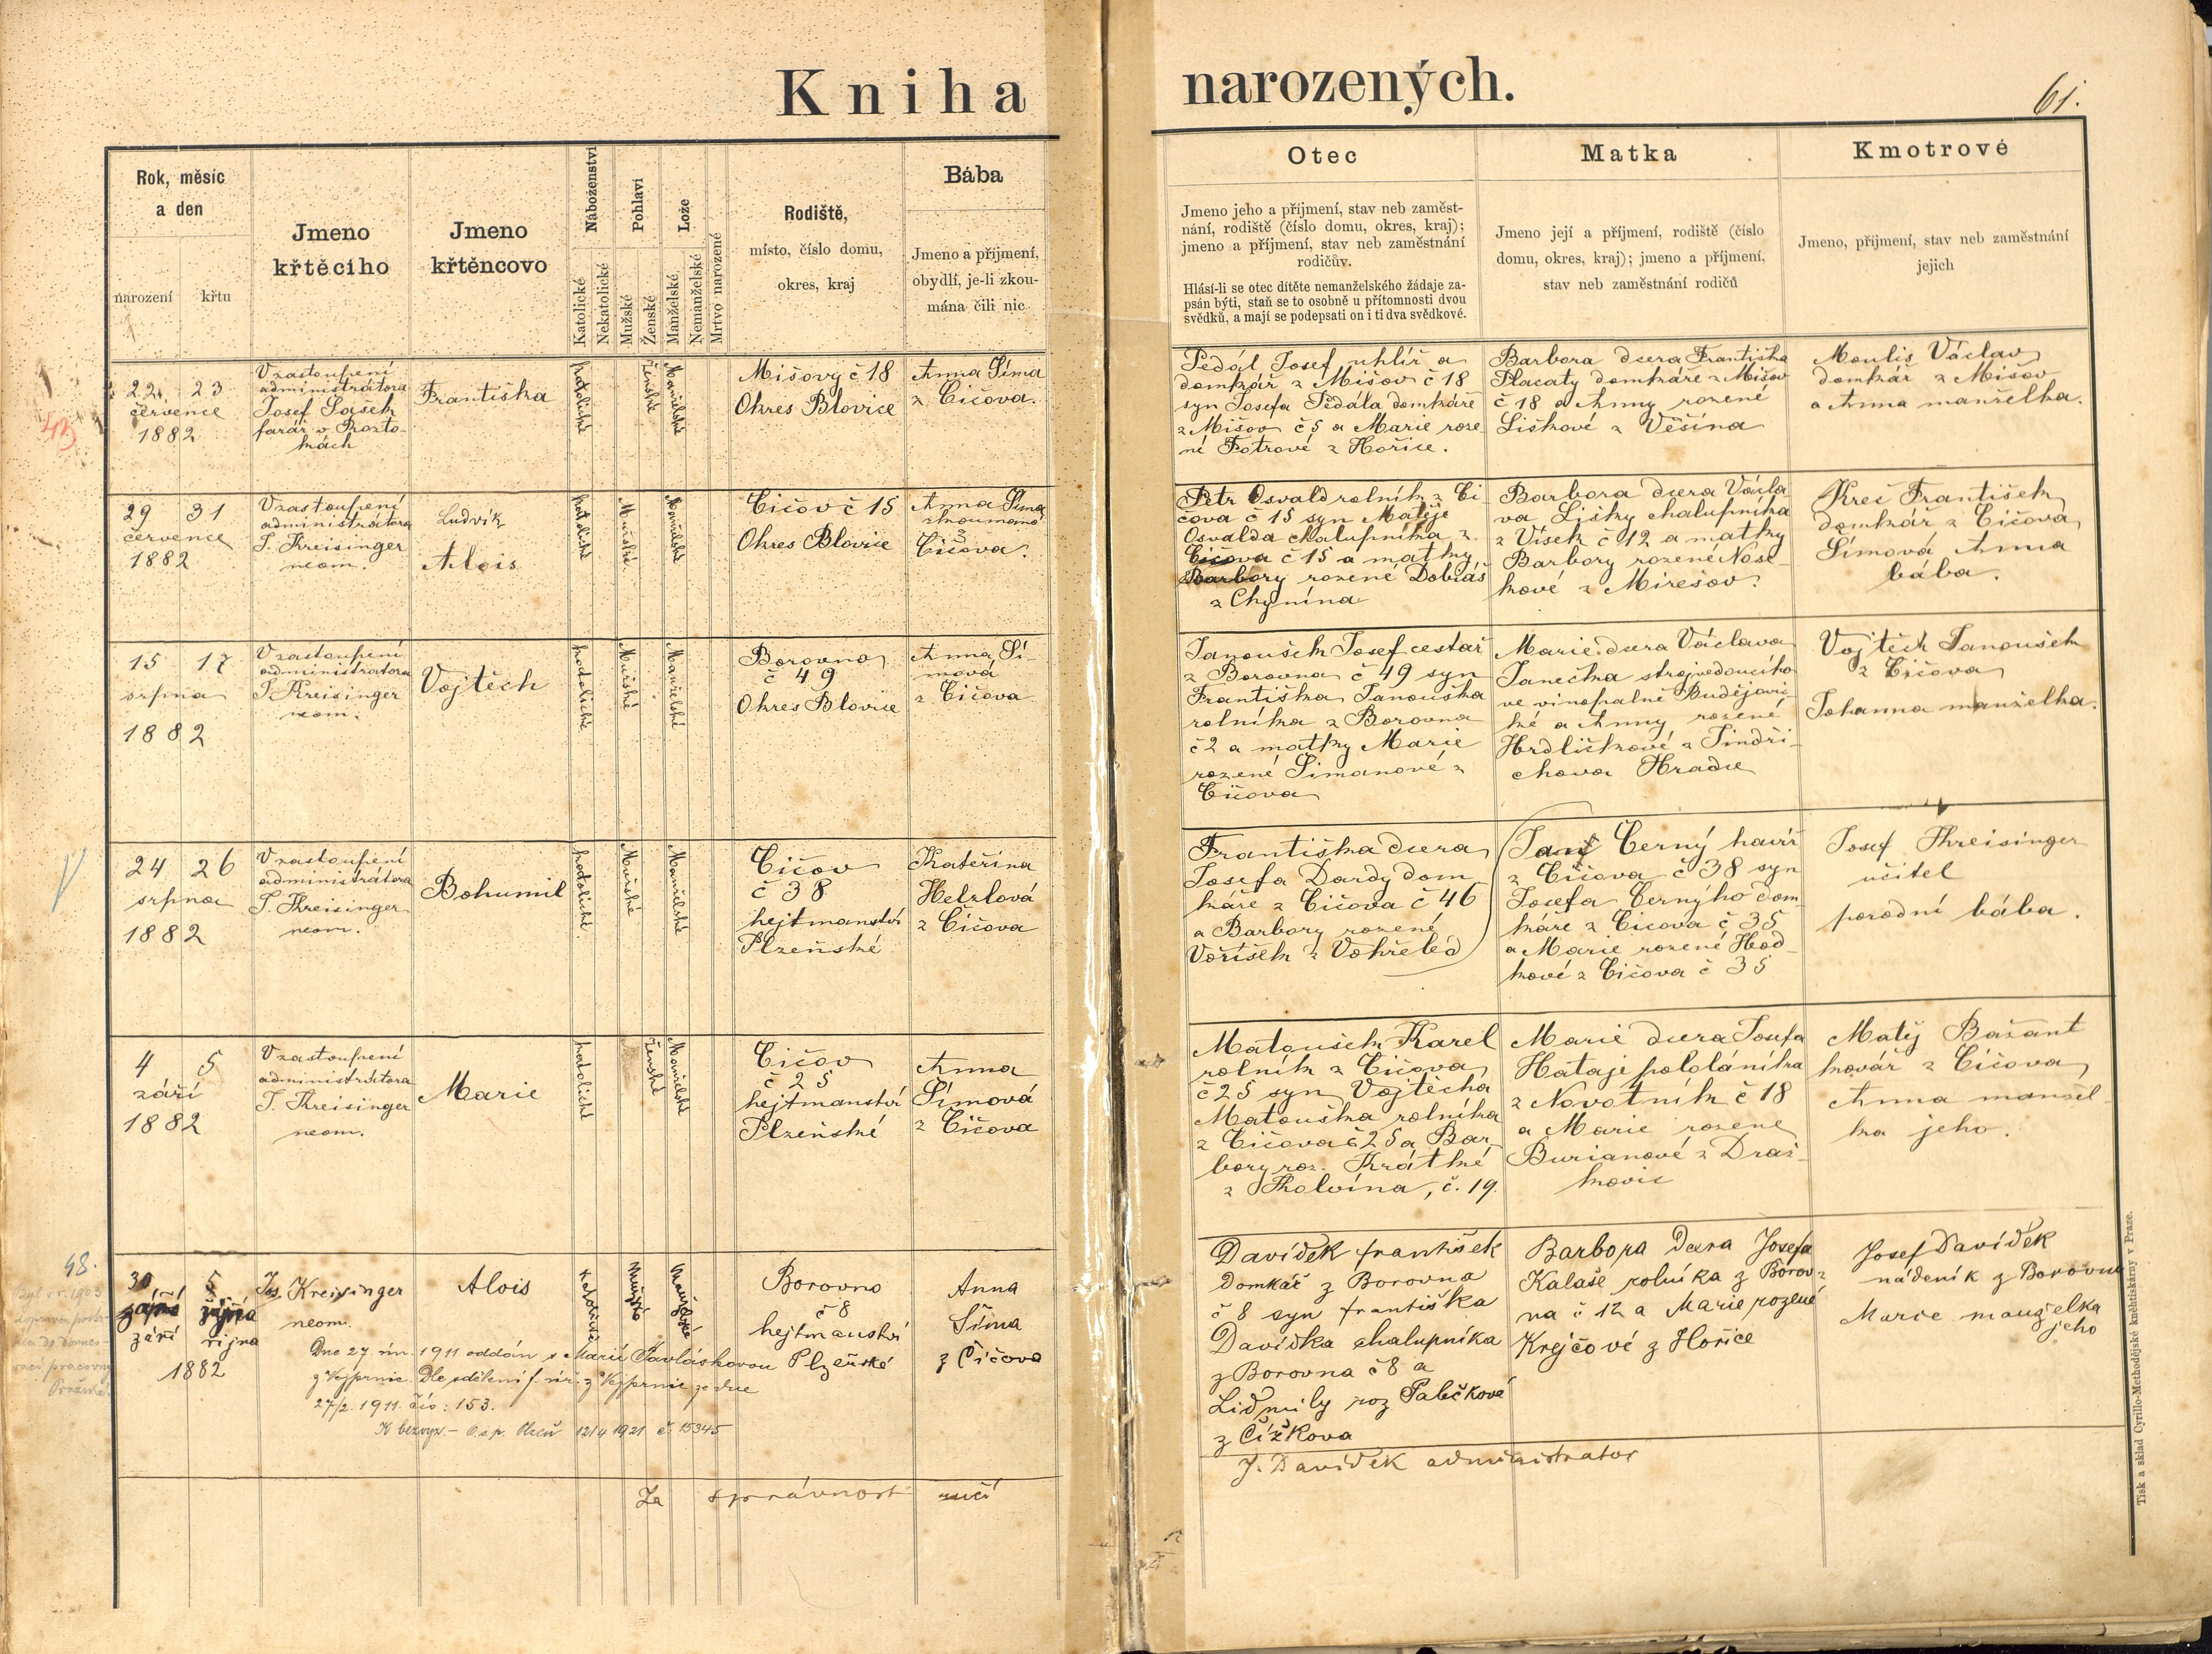 Kniha narozených.
61.
Rok, měsíc
a den
narození
křtu
Jmeno
křtěcího
Jmeno
křtěncovo
Náboženství
Katolické
Nekatolické
Pohlaví
Mužské
Ženské
Lože
Manželské
Nemanželské
Mrtvo narozené
Rodiště,
místo, číslo domu,
okres, kraj
Bába
Jmeno a příjmení,
obydlí, je-li zkou-
mána čili nic
Otec
Jmeno jeho a příjmení, stav neb zaměst-
nání, rodiště (číslo domu, okres, kraj);
jmeno a příjmení, stav neb zaměstnání
rodičův.
Hlásí-li se otec dítěte nemanželského žádaje za-
psán býti, staň se to osobně u přítomnosti dvou
svědků, a mají se podepsati on i ti dva svědkové.
Matka
Jmeno její a příjmení, rodiště (číslo
domu, okres, kraj); jmeno a příjmení,
stav neb zaměstnání rodičů
Kmotrové
Jmeno, příjmení, stav neb zaměstnání
jejich
22. 23
července
1882
V zastoupení
administrátora
Josef Lašek
farář v Rozto-
kách
Františka
katolické
Ženské
Manželské
Mišový č 18
Okres Blovice
Anna Šíma
z Čičova.
Pedál Josef uhlíř a
domkář z Mišov č 18
syn Josefa Pedála domkáře
z Mišov č 5 a Marie roze
né Fotrové z Hořice.
Barbora dcera Františka
Placaty domkáře z Mišov
č 18 a Anny rozené
Liškové z Věšína
Moulis Václav
domkář z Mišov
a Anna manželka.
29 31
července
1882
V zastoupení
administrátora
J. Kreisinger
neom.
Ludvík
Alois
katolické
Mužské
Manželské
Čičov č 15
Okres Blovice
Anna Šíma
zkoumaná
Čičova.
Petr Osvald rolník z Či
čova č 15 syn Matěje
Osvalda chalupníka z
Čičova č 15 a matky
Barbory rozené Dobiáš
z Chynína
Barbora dcera Václa
va Lišky chalupníka
z Vísek č 12 a matky
Barbory rozené Nose-
kové z Mirešov.
Kreč František
domkář z Čičova
Šímová Anna
bába.
15 17
srpna
1882
V zastoupení
administrátora
J. Kreisinger
neom.
Vojtěch
katolické
Mužské
Manželské
Borovno
č 49
Okres Blovice
Anna Ší-
mová
z Čičova
Janoušek Josef cestář
z Borovna č 49 syn
Františka Janouška
rolníka z Borovna
č 2 a matky Marie
rozené Šimanové z
Čičova
Marie dcera Václava
Janečka strojvedoucího
ve vinopalně Budějovic-
ké a Anny rozené
Hrdličkové z Jindři-
chova Hradce
Vojtěch Janoušek
z Čičova
Johanna manželka.
24 26
srpna
1882
V zastoupení
administrátora
J. Kreisinger
neom.
Bohumil
katolické
Mužské
Manželské
Čičov
č 38
hejtmanství
Plzeňské
Kateřina
Helzlová
z Čičova
Františka dcera
Josefa Dardy dom
káře z Čičova č 46
a Barbory rozené
Voříšek z Vokřeled
Jan Černý havíř
z Čičova č 38 syn
Josefa Černýho dom-
káře z Čičova č 35
a Marie rozené Hod-
kové z Čičova č 35
Josef Kreisinger
učitel
porodní bába.
4 5
září
1882
V zastoupení
administrátora
J. Kreisinger
neom.
Marie
katolické
Ženské
Manželské
Čičov
č 25
hejtmanství
Plzeňské
Anna
Šímová
z Čičova
Matoušek Karel
rolník z Čičova
č 25 syn Vojtěcha
Matouška rolníka
z Čičova č 25 a Bar
bory roz. Krátké
z Kolvína, č. 19.
Marie dcera Josefa
Hataje pololáníka
z Novotník č 18
a Marie rozene
Burianové z Draž-
kovic
Matěj Bažant
kovář z Čičova
Anna manžel-
ka jeho.
48.
30 5
září října
1882
Jos. Kreisinger
neom.
Alois
katolické
Mužské
Manželské
Borovno
č 8
hejtmanství
Plzeňské
Anna
Šíma
z Čičova
Dne 27. un. 1911 oddán s Marií Pavláskovou
z Vejprnic. Dle sdělení f. úř. z Vejprnic ze dne
27/2. 1911. čís: 153.
12/4 1921 č. 15345
Davídek františek
Domkář z Borovna
č 8 syn františka
Davídka chalupníka
z Borovna č 8 a
Lidmily roz Palečkové
z Čížkova
Barbora dcera Josefa
Kalaše rolníka z Borov-
na č 12 a Marie rozené
Krejčové z Hořice
Josef Davídek
nádeník z Borovna
Marie manželka
jeho
Za správnost ručí
J. Davídek administrator
Tisk a sklad Cyrillo-Methodějské knihtiskárny v Praze.